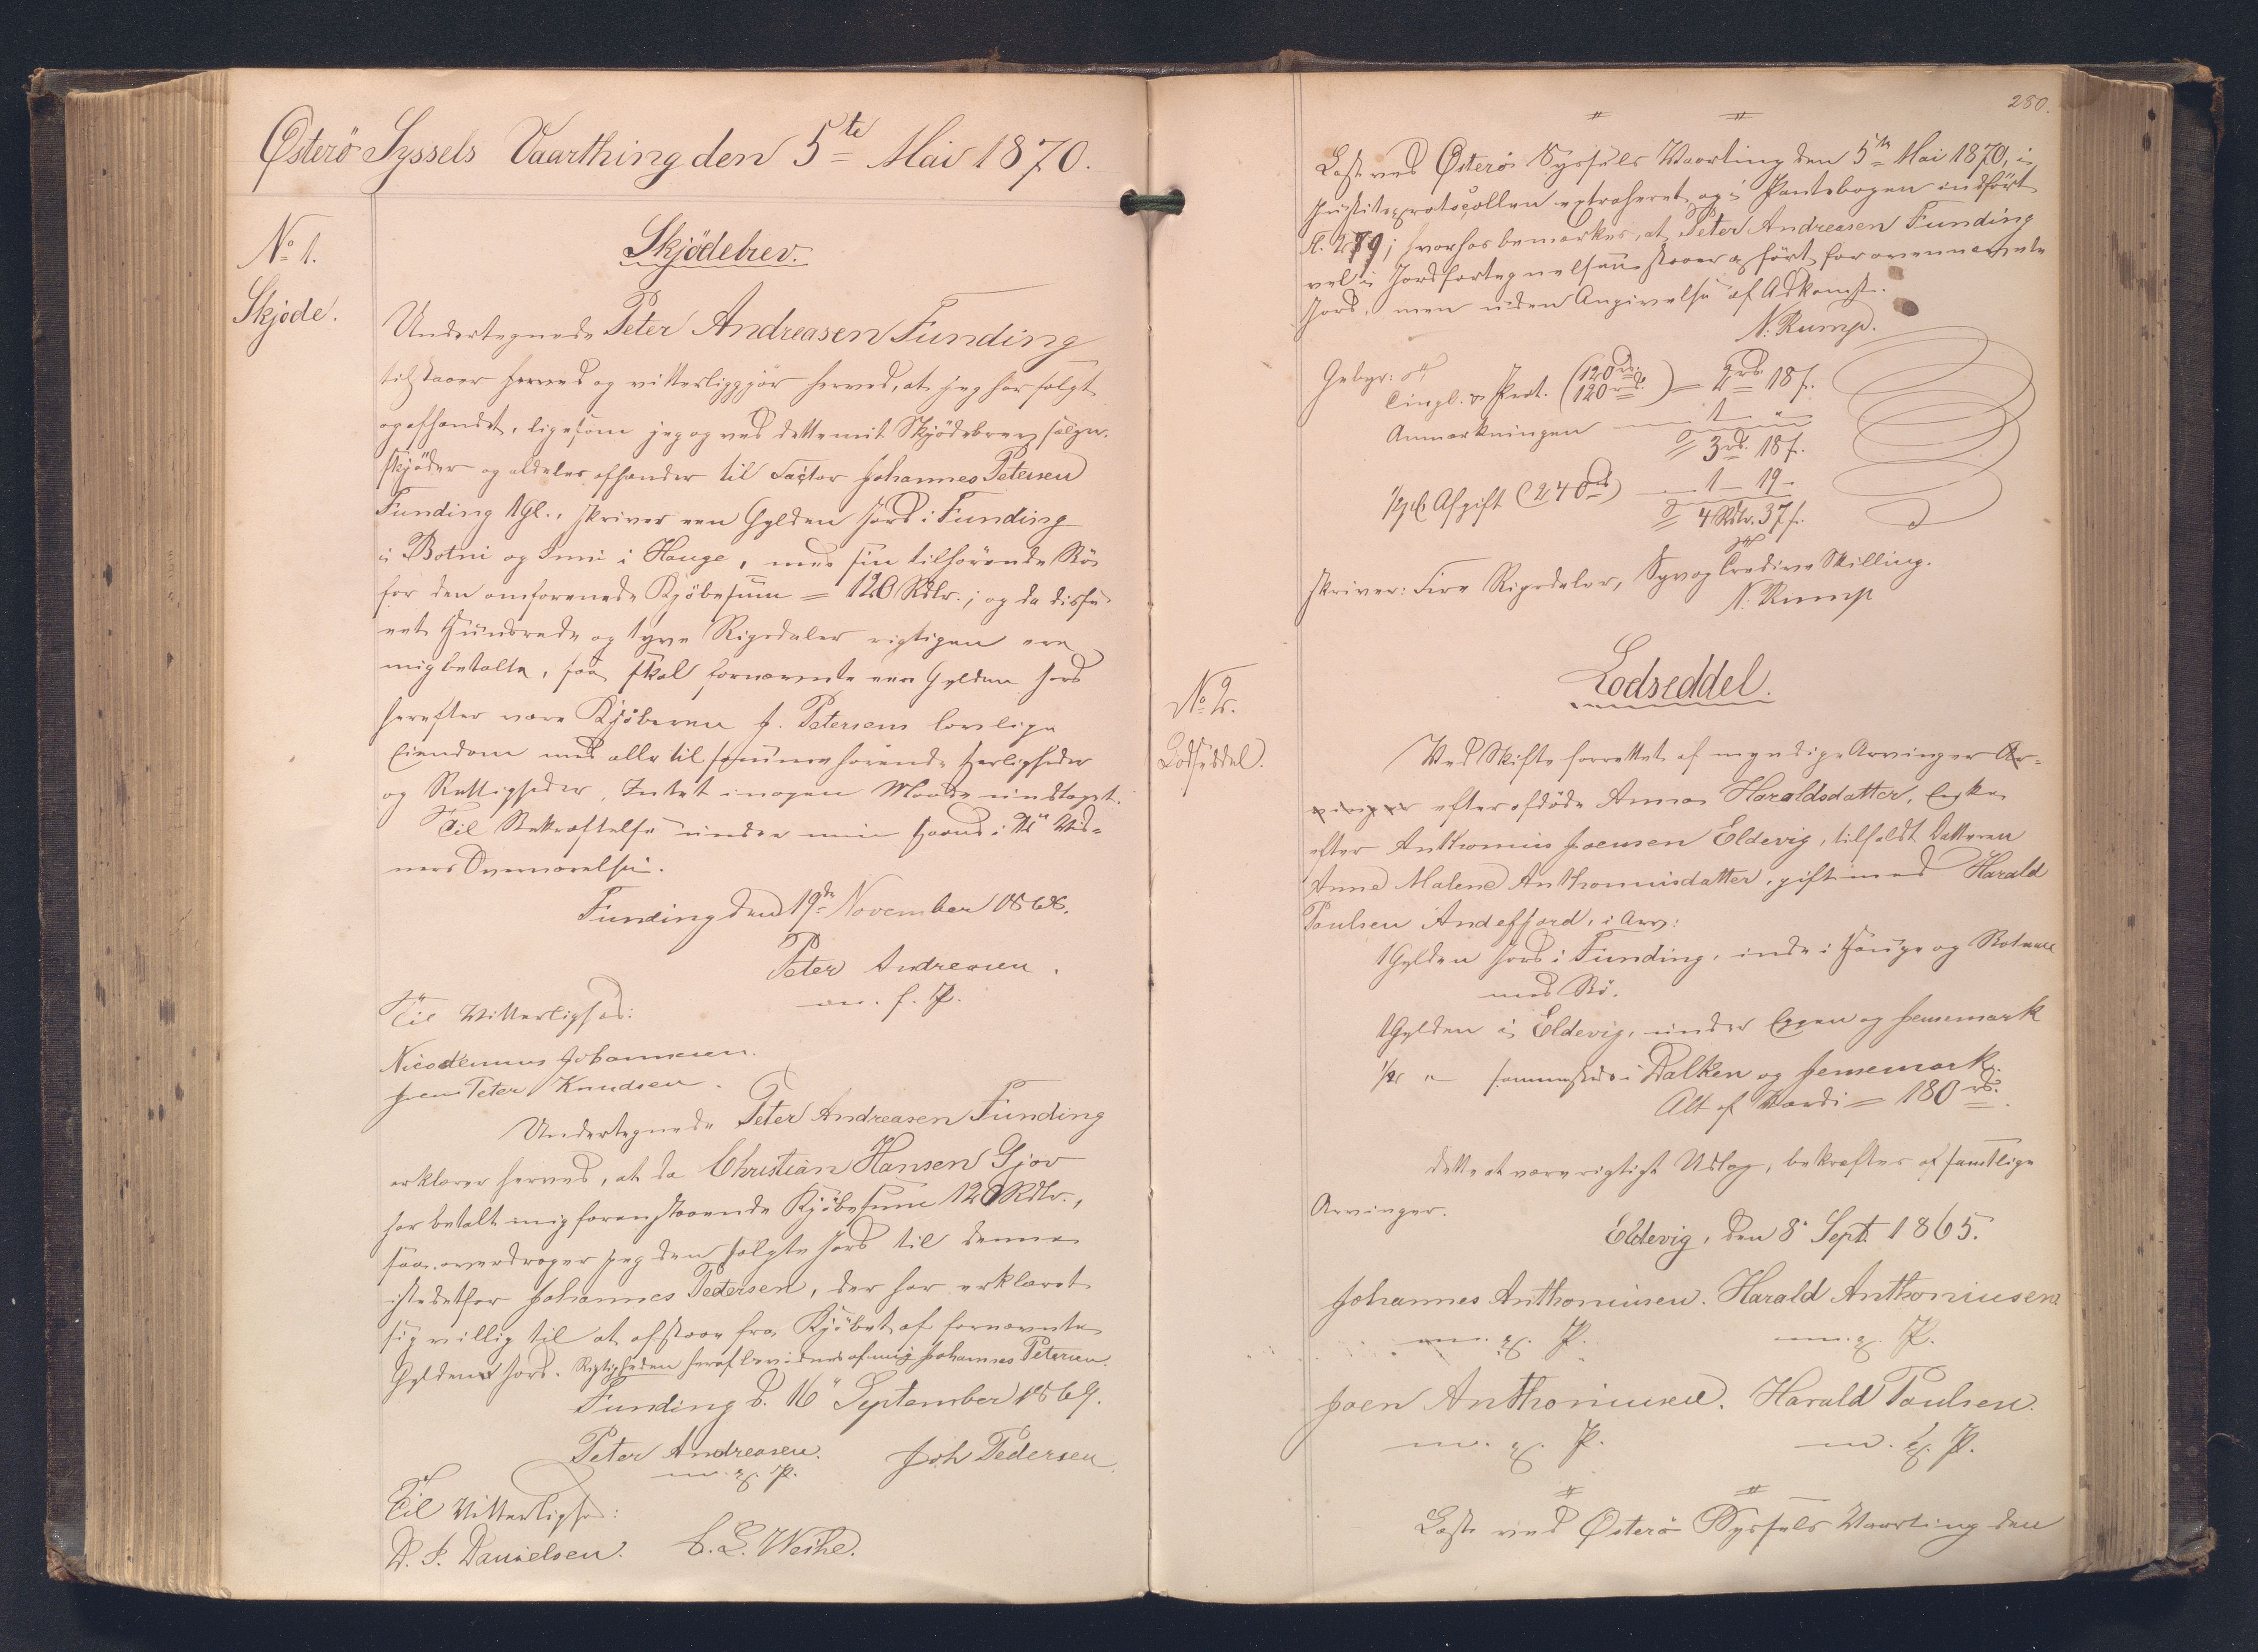 Østerö Syssels Vaarthing den 5te Mai 1870.
No 1.
Skjøde.
Skjödebrev.
Undertegnede Peter Andreasen Funding
tilstaaer herved og vitterliggjör herved, at jeg har solgt
og afhændet, ligesom jeg og ved dette mit Skjödebrev sælger,
skjöder og aldeles afhænder til Factor Johannes Petersen
Funding 1 Gl., skriver een Gylden Jord i Funding
i Botni og Inni i Hauge, med sin tilhörende Bö
for den omforenede Kjöbesum = 120 Rdlr.; og da disse
eet Hundrede og tyve Rigsdaler rigtigen ere
mig betalte, saa skal fornævnte een Gylden Jord
herefter være Kjöberen J. Petersens lovlige
Eiendom med alle til samme hörende Herligheder
og Rettigheder, Intet i nogen Maade undtaget.
Til Bekræftelse under min Haand i Vid-
ners Overværelse.
Funding den 19de November 1868.
Peter Andreasen.
m. f. P.
Til Vitterlighed:
Nicodemus Johannesen.
Jens Peter Knudsen.
Undertegnede Peter Andreasen Funding
erklærer herved, at da Christian Hansen Gjov
har betalt mig foranstaaende Kjöbesum 120 Rdlr.,
saa overdrager jeg den solgte Jord til denne
istedetfor Johannes Pedersen, der har erklæret
sig villig til at afstaae fra Kjöbet af fornævnte
Gylden Jord. Rigtigheden heraf bevidnes af mig Johannes Petersen.
Funding d. 16 September 1869.
Peter Andreasen. Joh Pedersen
m. f. P.
Til Vitterlighed:
D. J. Danielsen. C. L. Weihe.
280.
Læst ved Østerö Syssels Vaarting den 5te Mai 1870, i
Justitsprotocollen extraheret og i Pantebogen indfört
fl. 279; hvorhos bemærkes, at Peter Andreasen Funding
vel i Jordfortegnelsen staaer anfört for ovennævnte
Jord, men uden Angivelse af Adkomst.
N. Rump.
Gebyr:
Tingl. & Prot. (120 rd. 120 rd.) = 2 rd. 18 s.
Anmærkningen 1 "
= 3 rd. 18 s.
1/2 pCt Afgift (240 rd) 1 - 19 -
= 4 Rdlr. 37 s.
skriver: Fire Rigsdaler, Syv og Tredive Skilling.
N. Rump
No 2.
Lodseddel.
Lodseddel.
Ved Skifte forrettet af myndige Arvinger Ar-
vinger efter afdöde Anna Haraldsdatter, Enke
efter Anthonius Joensen Eldevig, tilfaldt Datteren
Anne Malene Anthoniusdatter, gift med Harald
Poulsen Andefjord, i Arv:
1 Gylden Jord i Funding, inde i Hauge og Botnen
med Bö.
1 Gylden i Eldevig, under Eggen og Jensemark
1/2 " sammesteds i Dalken og Jensemark.
Alt af Værdi = 180 rd.
Dette at være rigtigt Udlæg, bekræftes af samtlige
Arvinger.
Eldevig, den 8 Sept. 1865.
Johannes Anthoniusen. Harald Anthoniusen
m. f. P. m. f. P.
Joen Anthoniusen. Harald Poulsen.
m. f. P. m. f. P.
Læst ved Østerö Syssels Vaarting den